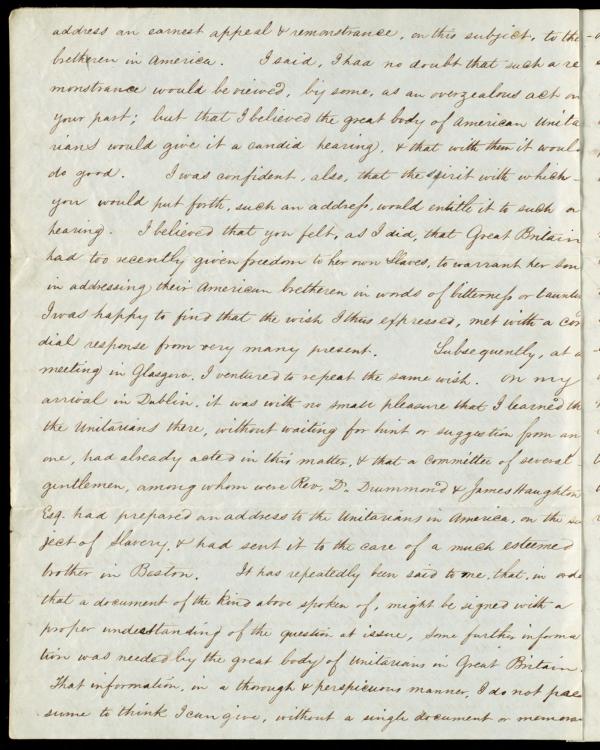 address an earnest appeal & remonstrance, on this subject, to the
bretheren in America. I said, I had no doubt that such a re
monstrance would be viewed, by some, as an overzealous act on
your part; but that I believed the great body of American Unita
rians would give it a candid hearing, & that with them it would
do good. I was confident, also, that the spirit with which
you would put forth, such an address, would entitle it to such a
hearing. I believed that you felt, as I did, that Great Britain
had too recently given freedom to her own Slaves, to warrant her son
in addressing their American bretheren in words of bitterness or taunts
I was happy to find that the wish I thus expressed, met with a cor
dial response from very many present. Subsequently, at a
meeting in Glasgow, I ventured to repeat the same wish. On my
arrival in Dublin, it was with no small pleasure that I learned th
the Unitarians there, without waiting for hint or suggestion from an
one, had already acted in this matter, & that a committee of several
gentlemen, among whom were Rev. Dr. Drummond & James Haughton
Esq. had prepared an address to the Unitarians in America, on the su
ject of Slavery, & had sent it to the care of a much esteemed
brother in Boston. It has repeatedly been said to me, that, in orde
that a document of the kind above spoken of, might be signed with a
proper understanding of the question at issue, some further informa
tion was needed by the great body of Unitarians in Great Britain.
That information, in a thorough & perspicuous manner, I do not pre
sume to think I can give, without a single document or memora